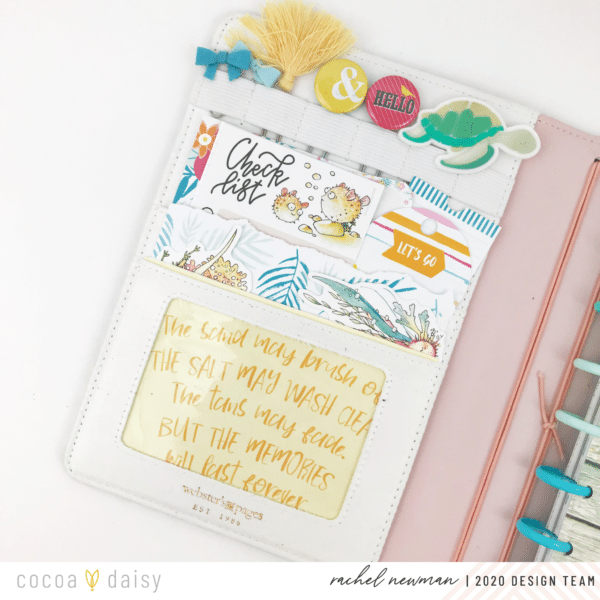 &
HELLO
Check
list
LET'S GO
The sand may brush of
THE SALT MAY WASH CLEA
The tans may fade.
BUT THE MEMORIES
will last forever
webster's pages
EST 1980
cocoa daisy
rachel newman | 2020 DESIGN TEAM